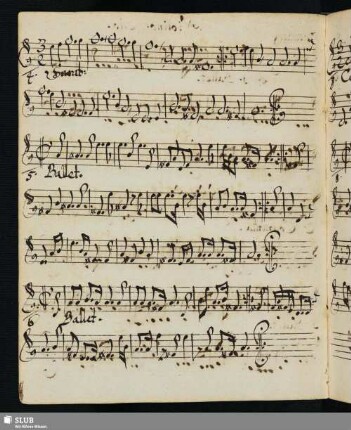 4
5 Ballet.
6 Ballet.
SLUB
Wir führen Wissen.